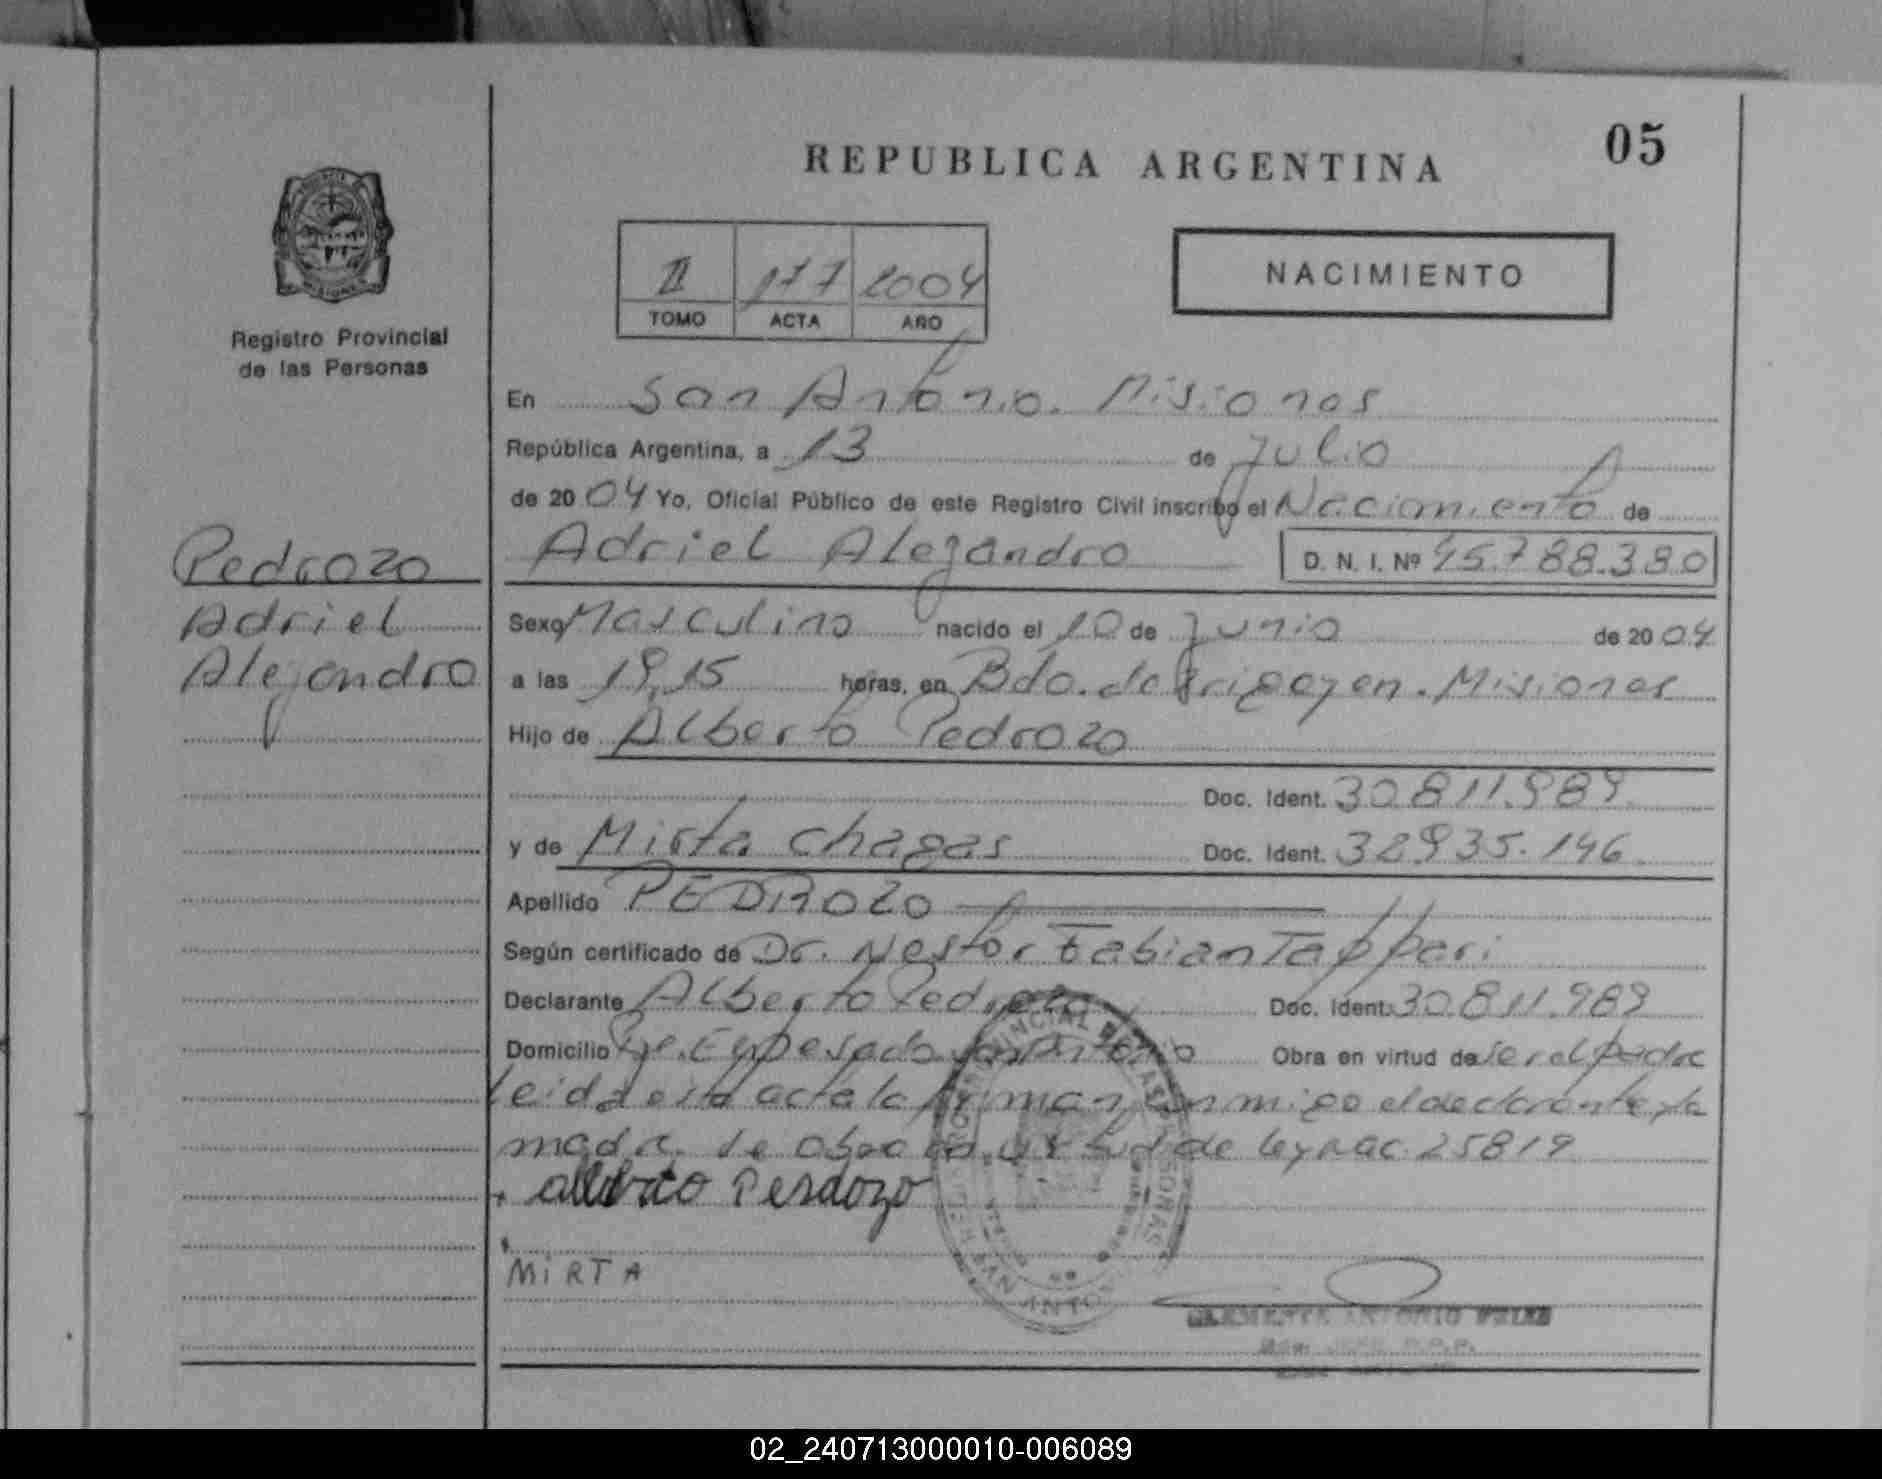 05
REPUBLICA ARGENTINA
II 177 2004
TOMO ACTA AÑO
NACIMIENTO
Registro Provincial
de las Personas
En San Antonio. Misiones
República Argentina, a 13 de Julio
de 2004 Yo, Oficial Público de este Registro Civil inscribo el Nacimiento de
Pedrozo
Adriel
Alejandro
Adriel Alejandro D. N. I. Nº 45.788.380
Sexo Masculino nacido el 10 de Junio de 2004
a las 19,15 horas, en Bdo. de Irigoyen. Misiones
Hijo de Alberto Pedrozo
Doc. Ident. 30.811.989.
y de Mirta Chagas Doc. Ident. 32.935.146.
Apellido PEDROZO
Según certificado de Dr. Nestor Fabian Tappari
Declarante Alberto Pedrozo Doc. Ident. 30.811.989
Domicilio San Antonio Obra en virtud de ser el padre
Leida esta acta la firman conmigo el declarante y la
madre. Se en virtud de ley nac. 25819
alberto Perdozo
MiRTA
CLEMENTE ANTONIO
02_240713000010-006089